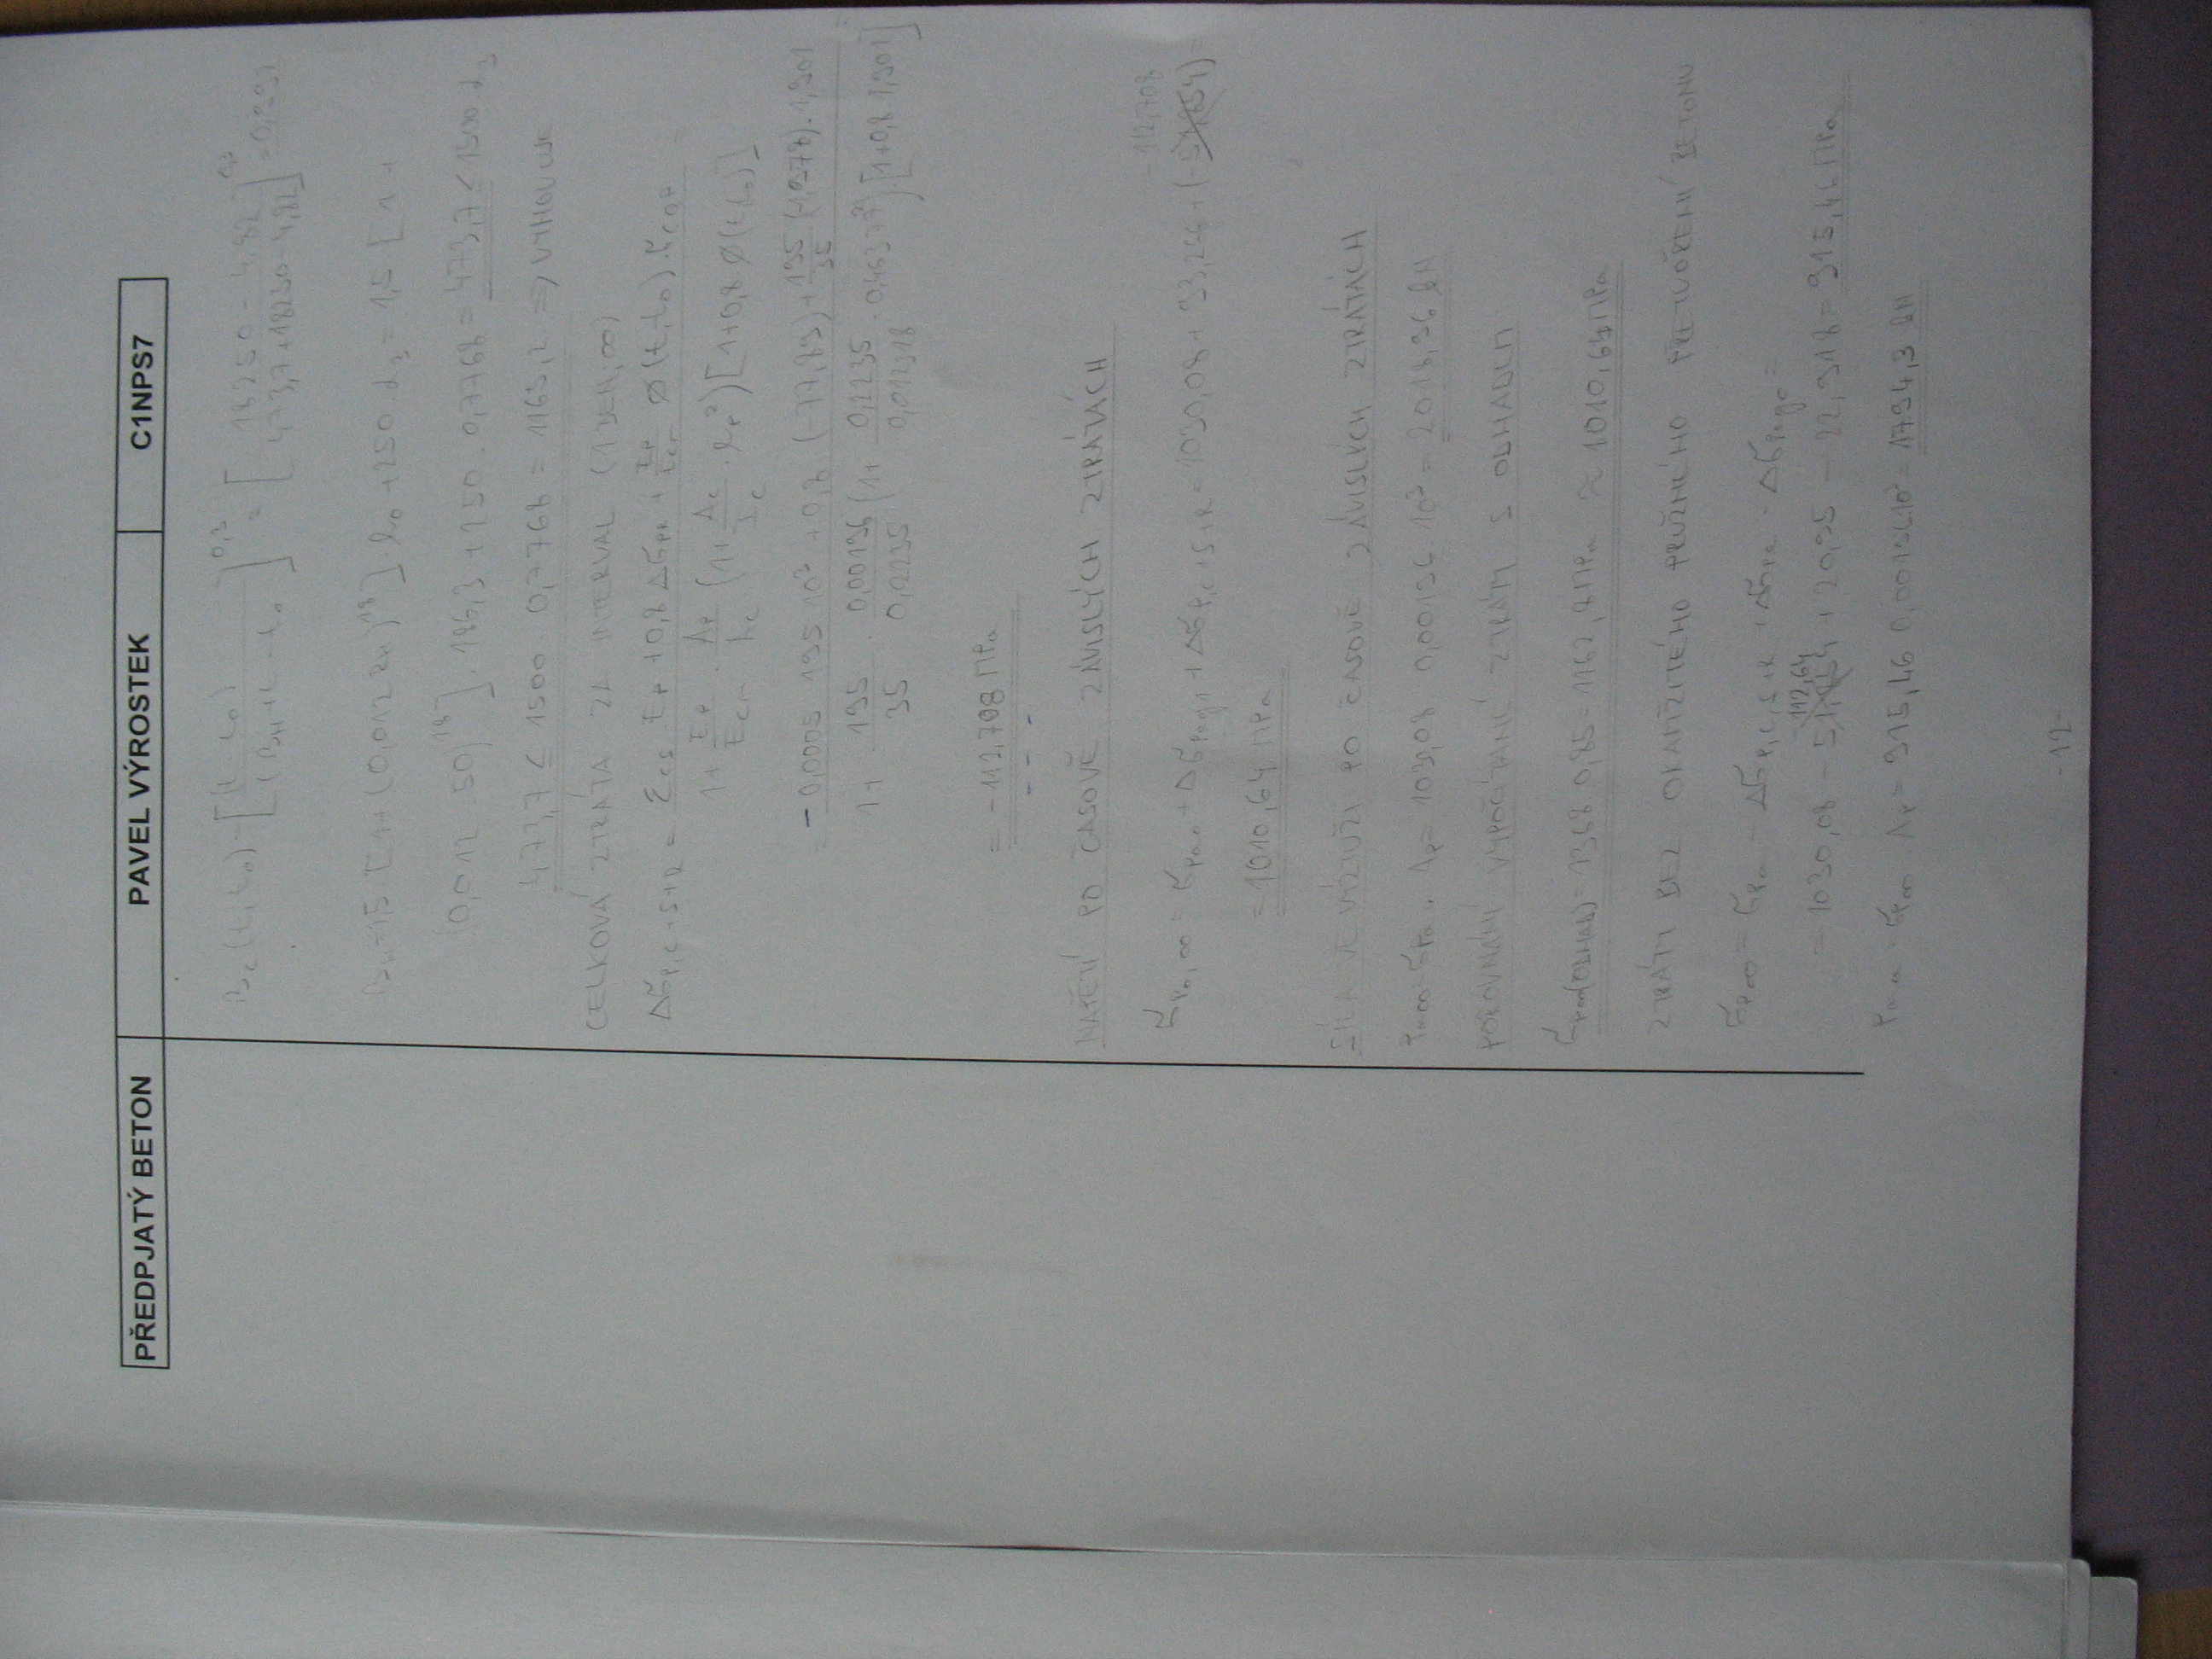 PŘEDPJATÝ BETON PAVEL VÝROSTEK C1NPS7
βc(t,t₀) = [(t-t₀)/(βH+t-t₀)]^0,3 = [(18250 - 4,82)/(473,7+18250-4,82)]^0,3 = 0,993
βH = 1,5 · [1+(0,012 RH)^18] · h₀ + 250 · α₃ = 1,5 [1 +
(0,012 · 50)^18] · 186,3 + 250 · 0,7768 = 473,7 ≤ 1500 · α₃
473,7 ≤ 1500 · 0,7768 = 1165,2 => VYHOVUJE
CELKOVÁ ZTRÁTA ZA INTERVAL (1 DEN; ∞)
Δσp,c+s+r = (εcs · Ep + 0,8 Δσpr + Ep/Ecm · Ø(t,t₀) · σcqp)
/ (1 + Ep/Ecm · Ap/Ac (1 + Ac/Ic · zcp²) [1+0,8 Ø(t,t₀)])
= - (0,0005 · 195 · 10³ + 0,8 · (-77,83) + 195/35 (-1,978) · 1,901) =
/ (1 + 195/35 · 0,00196/0,2235 (1 + 0,2235/0,012318 · 0,46377²) · [1+0,8 · 1,901])
= -112,708 MPa
NAPĚTÍ PO ČASOVĚ ZÁVISLÝCH ZTRÁTÁCH
-112,708
σp,∞ = σpa0 + Δσp0q1 + Δσp,c+s+r = 1030,08 + 93,266 + (-51,654) =
= 1010,64 MPa
SÍLA VE VÝZTUŽI PO ČASOVĚ ZÁVISLÝCH ZTRÁTÁCH
Pm∞ = σpa · Ap = 1030,08 · 0,00196 · 10³ = 2018,96 kN
POROVNÁNÍ VYPOČÍTANÉ ZTRÁTY S ODHADEM
σp∞(ODHAD) = 1368 · 0,85 = 1162,8 MPa ≈ 1010,64 MPa
ZTRÁTY BEZ OKAMŽITÉHO PRUŽNÉHO PŘETVOŘENÍ BETONU
σp∞ = σpa - Δσp,c,s,r + Δσpa - Δσp0q0 =
-112,64
= 1030,08 - 51,654 + 20,95 - 22,918 = 915,46 MPa
Pm∞ = σp∞ · Ap = 915,46 · 0,00196 · 10³ = 1794,3 kN
- 12 -